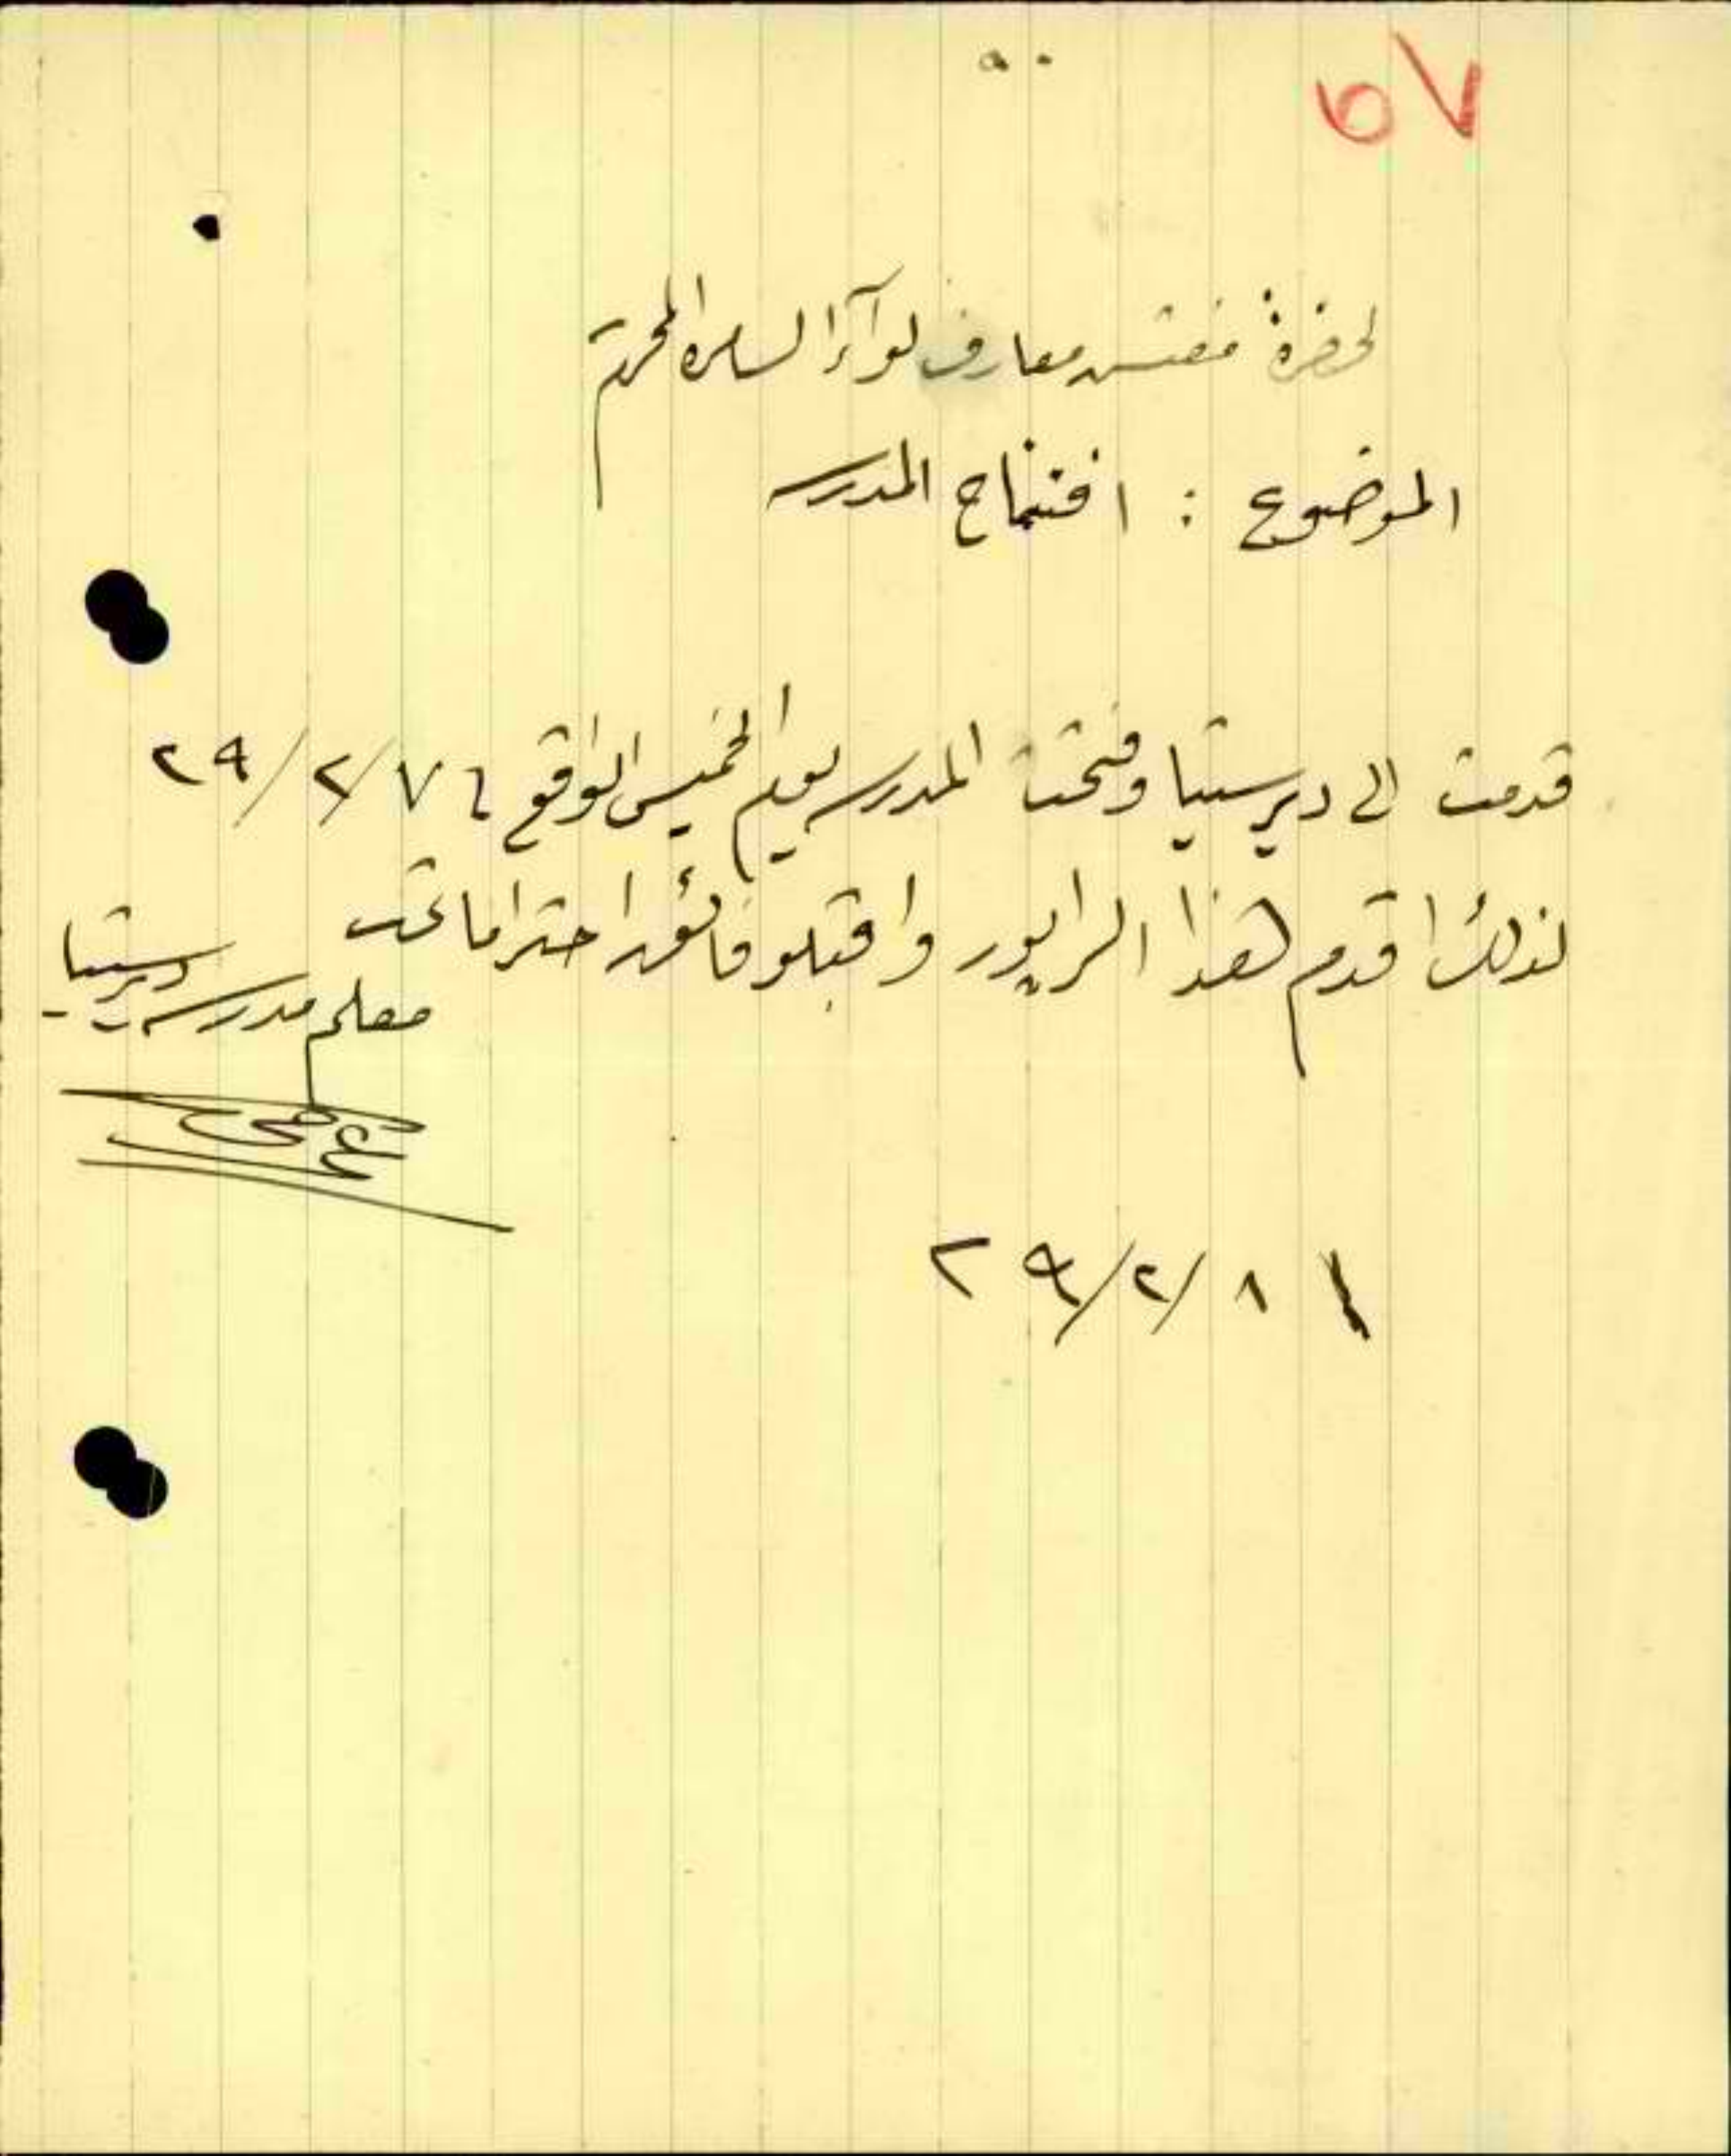 ٥٧
لحضرة مفتش معارف لوآء السامره المحترم
الموضوع : افتتاح المدرسه
قدمت الى ديرستيا وفتحت المدرسه يوم الخميس الواقع في ٢٩/٢/٧
لذلك اقدم هذا الرابور واقبلو فائق احتراماتي
معلم مدرسة ديرستيا
٢٩/٢/٨